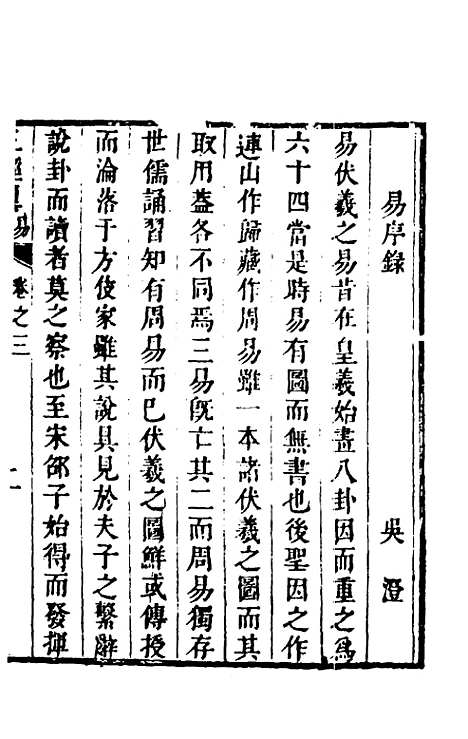 易序錄 吳澄
易伏羲之易昔在皇羲始畫八卦因而重之爲
六十四當是時易有圖而無書也後聖因之作
連山作歸藏作周易雖一本諸伏羲之圖而其
取用蓋各不同焉三易旣亡其二而周易獨存
世儒誦習知有周易而已伏羲之圖鮮或傳授
而淪落于方伎家雖其說具見於夫子之繫辭
說卦而讀者莫之察也至宋邵子始得而發揮
易 卷之三